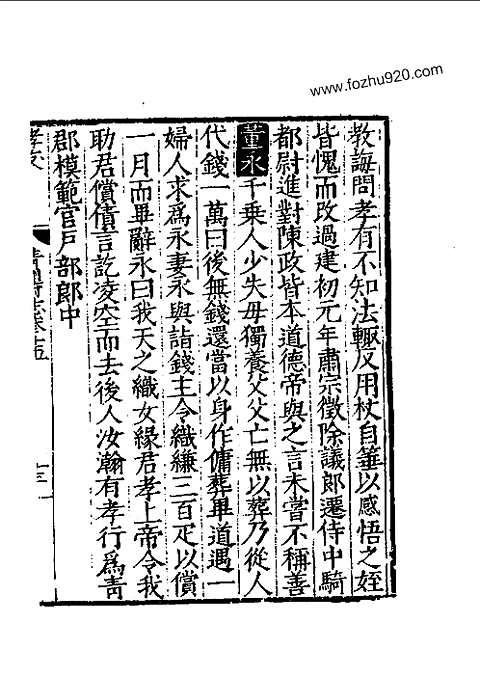 www.fozhu920.com
教誨問孝有不知法輙反用杖自箠以感悟之姪
皆愧而改過建初元年肅宗徵除議郎遷侍中騎
都尉進對陳政皆本道德帝與之言未嘗不稱善
董永千乗人少失母獨養父父亡無以葬乃從人
代錢一萬曰後無錢還當以身作傭葬畢道遇一
婦人求爲永妻永與詣錢主令織縑三百疋以償
一月而畢辭永曰我天之織女緣君孝上帝令我
助君償債言訖凌空而去後人汝瀚有孝行爲靑
郡模範官戸部郎中